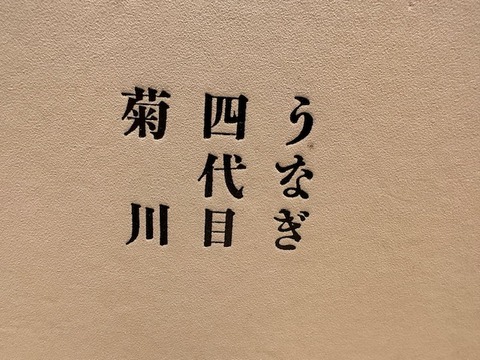 うなぎ
四代目
菊川